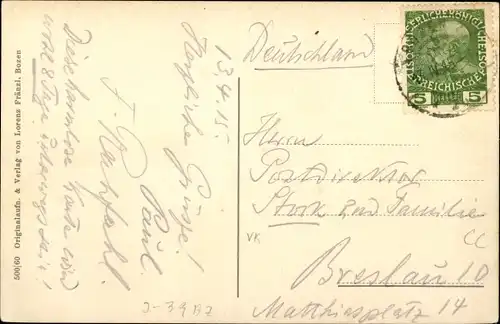 500|60 Originalaufn. & Verlag von Lorenz Fränzl, Bozen
Diese harmlose Karte wird
wohl 8 Tage unterwegs sein!
13.4.15.
Herzliche Grüsse!
Paul.
Deutschland
5 5
Herrn
Postdirektor
Stork und Familie
Breslau 10
Matthiasplatz 14
VK
CC
J-39AZ